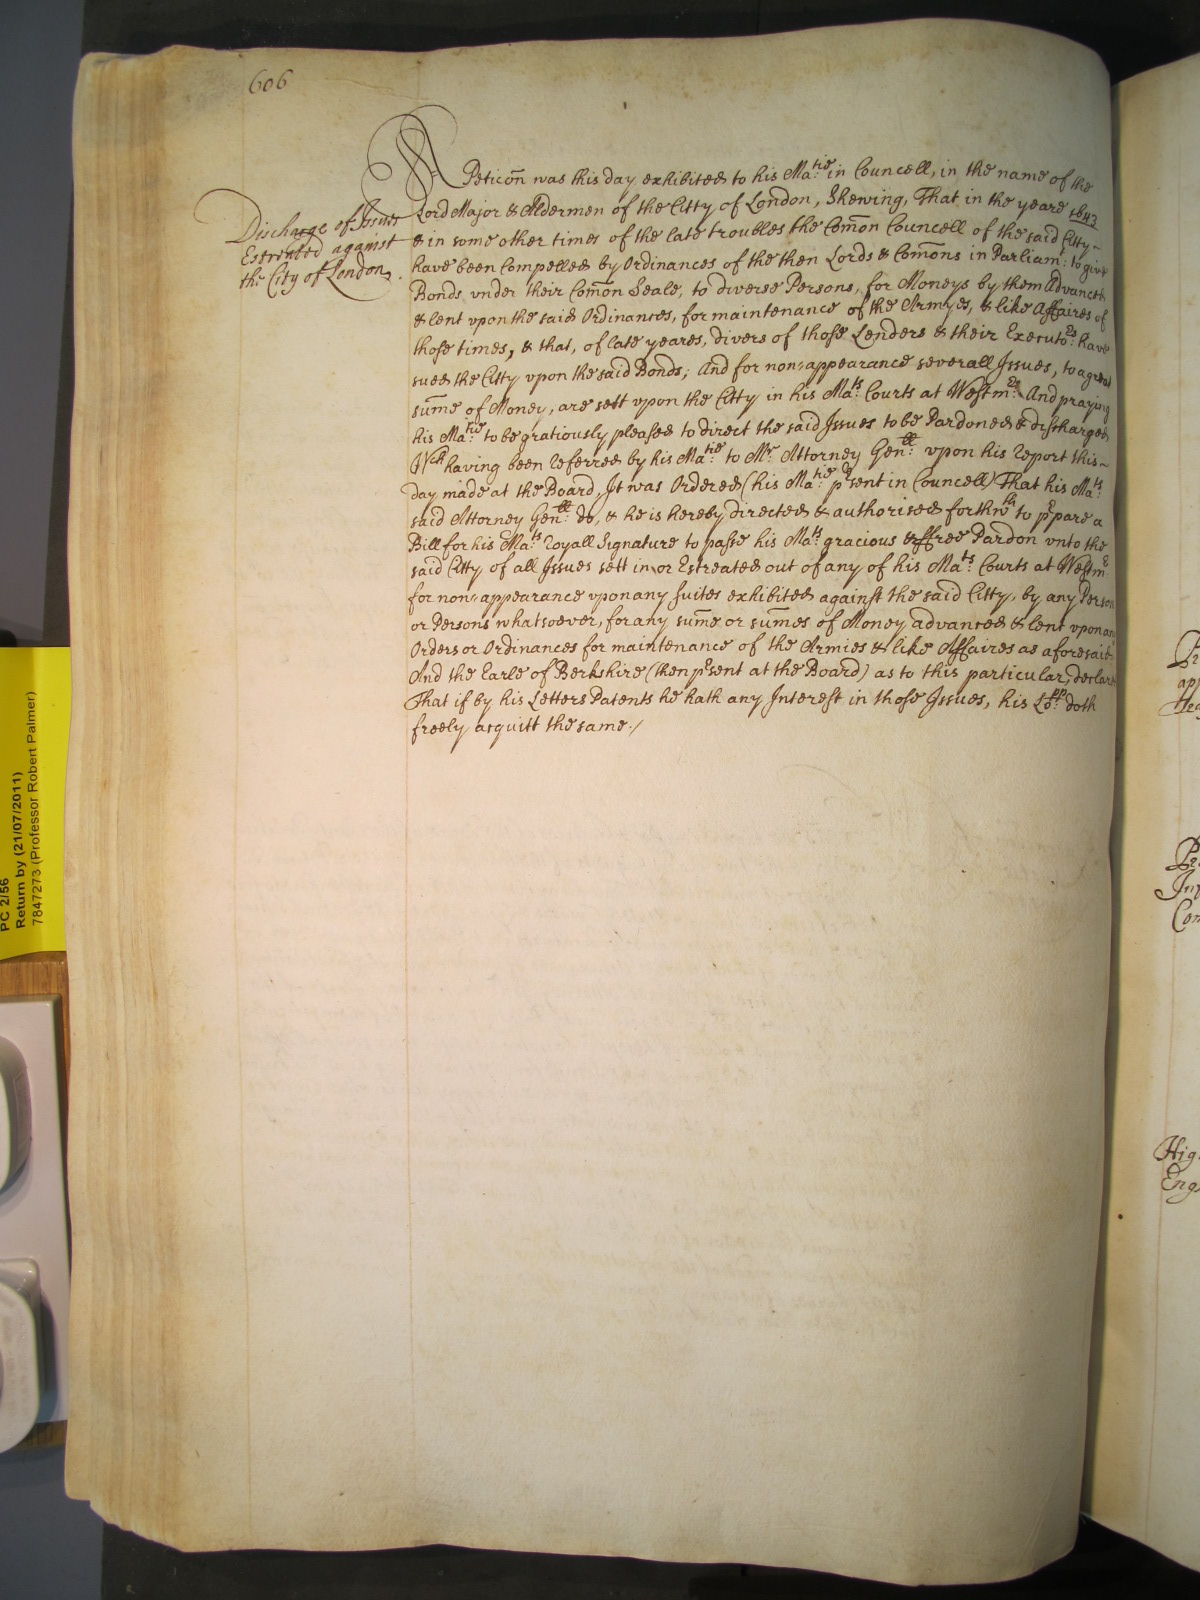 606
Discharge of Issues
Estreated against
the City of London.
A Peticōn was this day exhibited to his Ma:tie in Councell, in the name of the
Lord Major & Aldermen of the Citty of London, Shewing, That in the yeare 1643
& in some other times of the late troubles the Com̄on Councell of the said Citty
have been Compelled by Ordinances of the then Lords & Com̄ons in Parliam: to give
Bonds vnder their Com̄on Seale, to diverse Persons, for Moneys by them Advanced
& lent vpon the said Ordinances, for maintenance of the Armyes, & like Affaires of
those times, & that, of late yeares, divers of those Lenders & their Executo:rs have
sued the Citty vpon the said Bonds; And for non-appearance severall Issues, to a great
sum̄e of Money, are sett vpon the Citty in his Ma:ts Courts at Westm:er And praying
his Ma:tie to be gratiously pleased to direct the said Issues to be Pardoned & discharged
Wch having been Referred by his Ma:tie to Mr Attorney Gen:ll vpon his Report this
day made at the Board, It was Ordered (his Ma:tie pʳsent in Councell) That his Ma:ts
said Attorney Gen:ll do, & he is hereby directed & authorised forthwth to pʳpare a
Bill for his Ma:ts Royall Signature to passe his Ma:ts gracious & ffree Pardon vnto the
said Citty of all Issues sett in or Estreated out of any of his Ma:ts Courts at Westm:r
for non-appearance vpon any suites exhibited against the said Citty, by any Person
or Persons whatsoever, for any sum̄e or sum̄es of Money advanced & lent vpon any
Orders or Ordinances for maintenance of the Armies & like Affaires as aforesaid.
And the Earle of Berkshire (then pʳsent at the Board) as to this particular, declared
That if by his Letters Patents he hath any Interest in those Issues, his Lo:pp doth
freely acquitt the same./
PC 2/56
Return by (21/07/2011)
7847273 (Professor Robert Palmer)